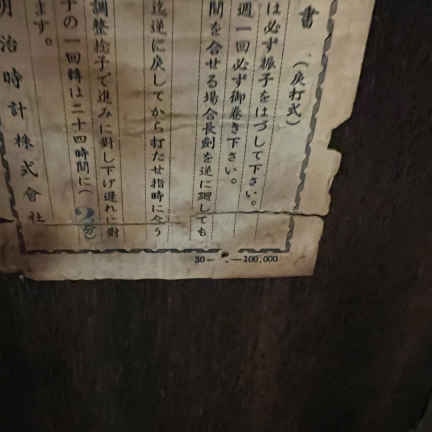 書　（戻打式）
は必ず振子をはづして下さい。
週一回必ず御巻き下さい。
間を合せる場合長剣を逆に廻しても
迄逆に戻してから打たせ指時に合う
調整捻子で進みに対し下げ遅れに対
子の一回轉は二十四時間に（2分）
ます。
明治時計株式會社
30— —100,000